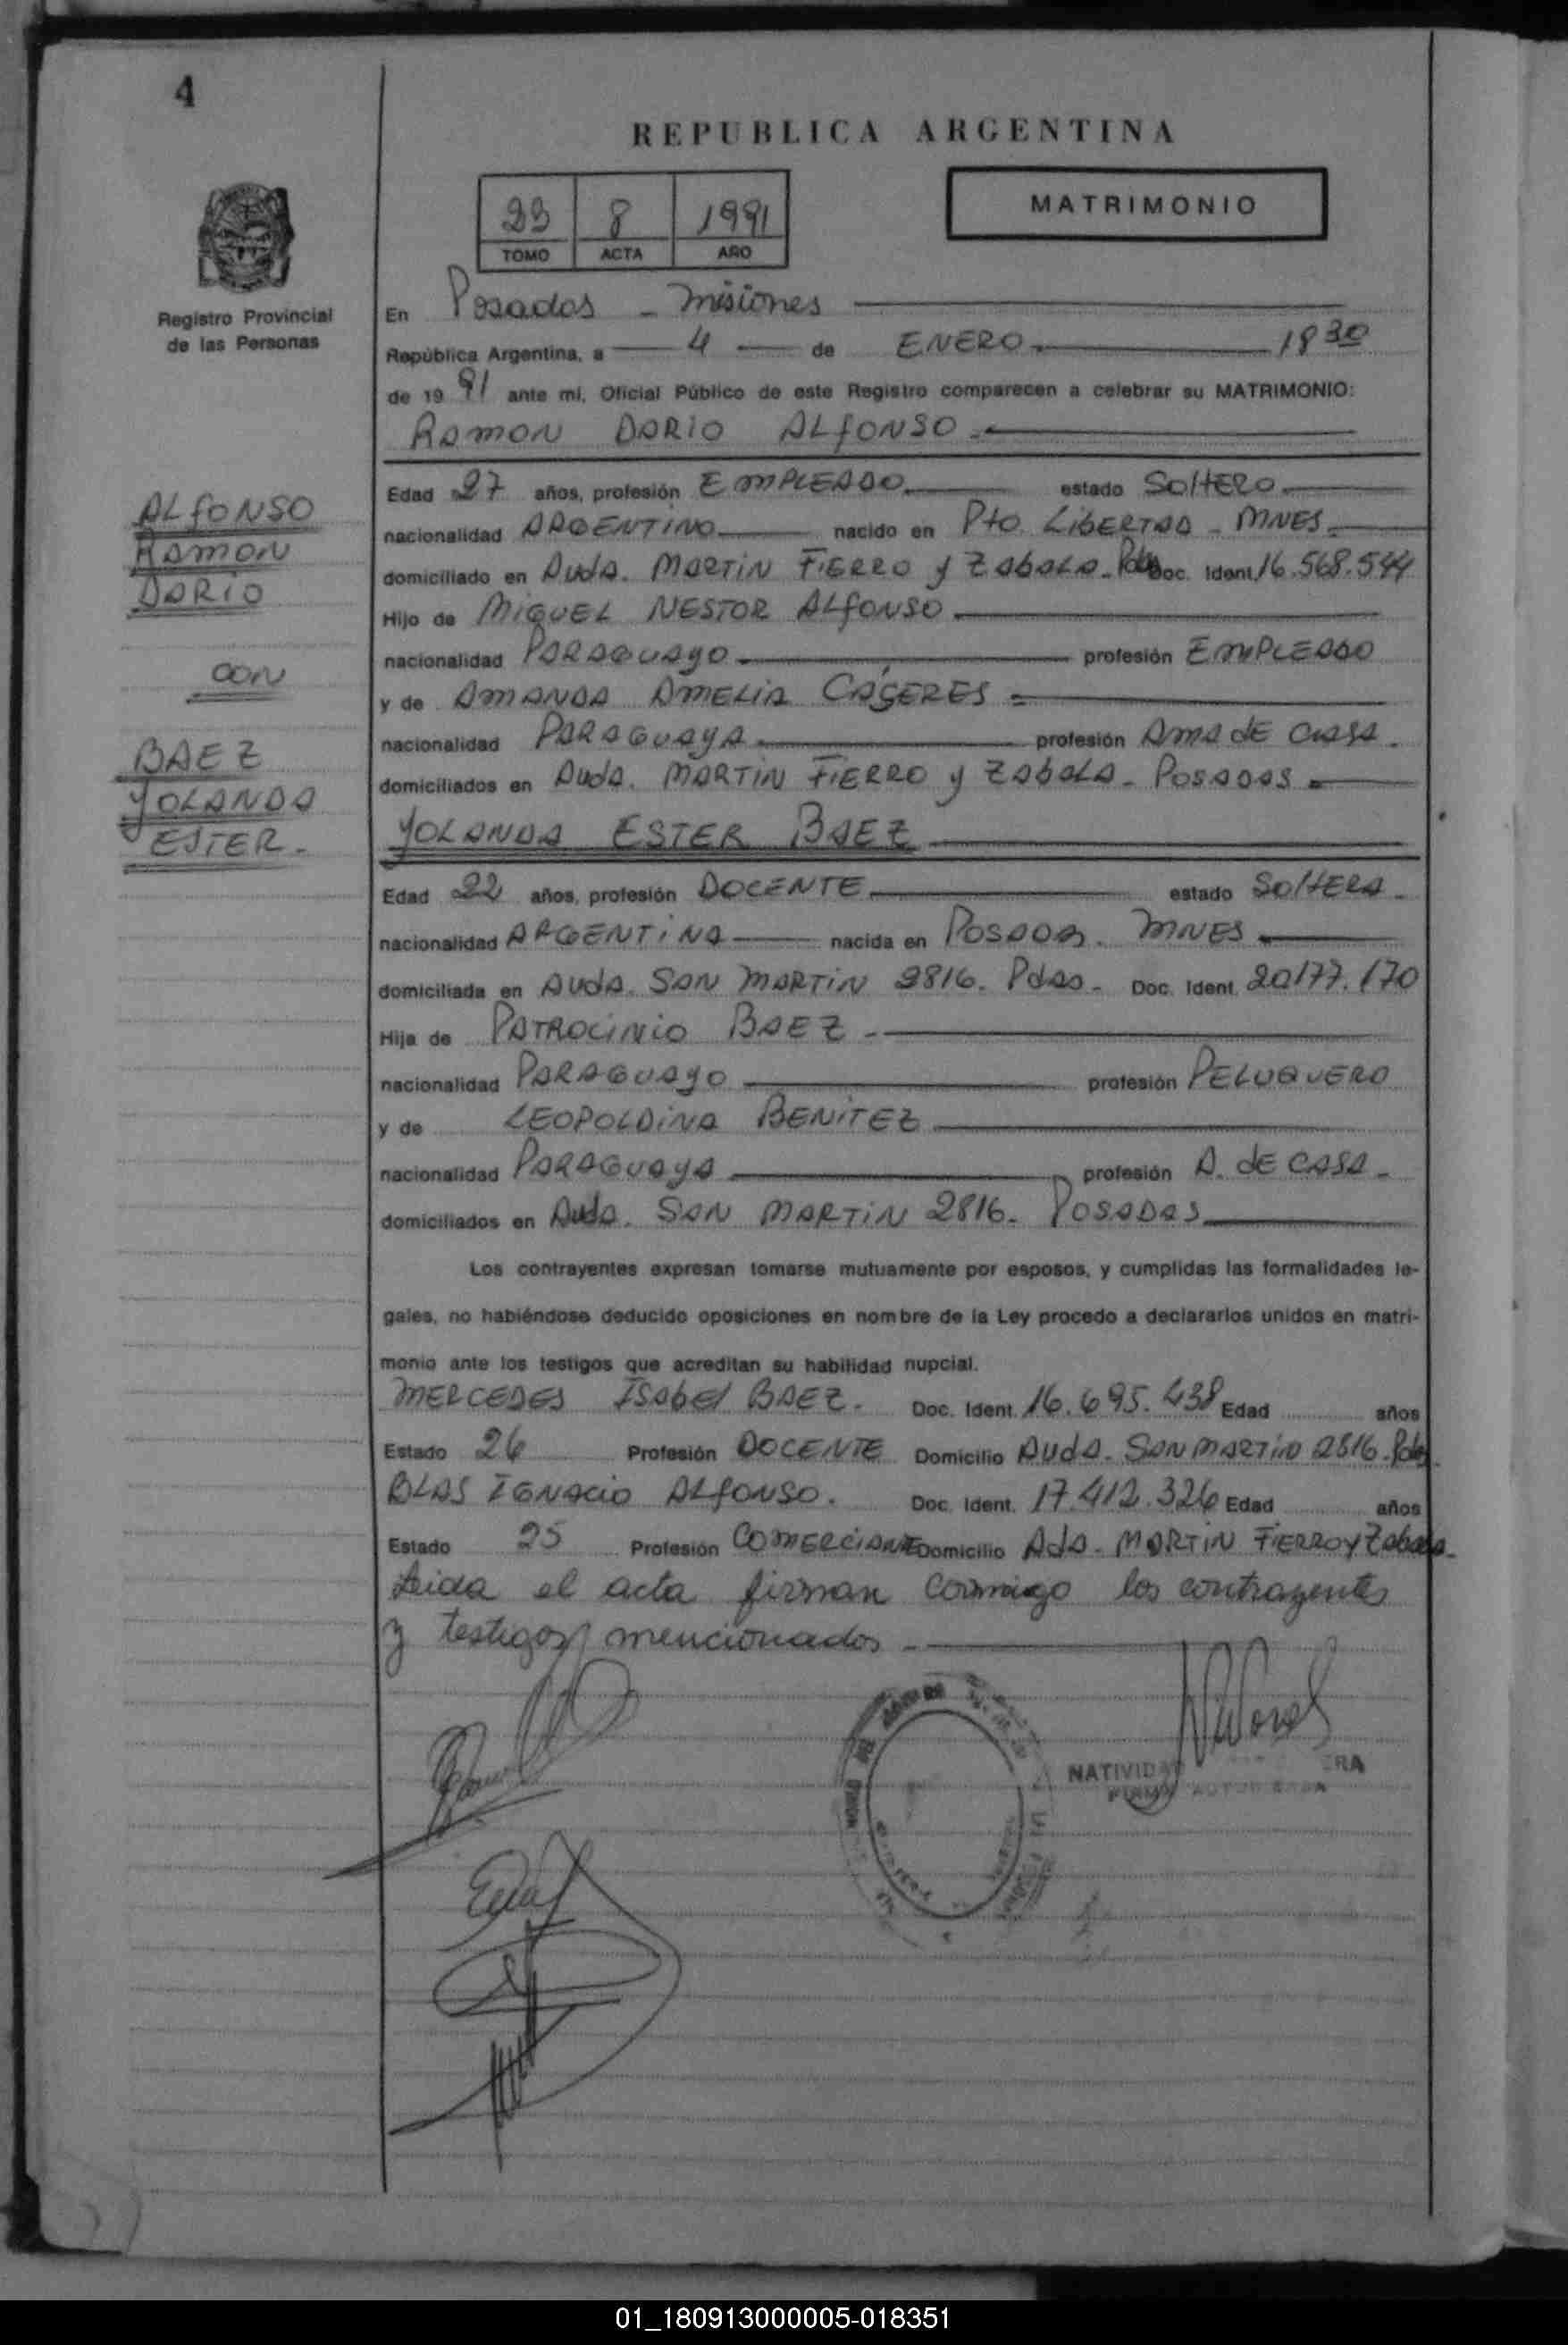 4
REPUBLICA ARGENTINA
23 8 1991
TOMO ACTA AÑO
MATRIMONIO
Registro Provincial
de las Personas
En Posadas - Misiones
República Argentina, a 4 de ENERO 18 30
de 19 91 ante mi, Oficial Público de este Registro comparecen a celebrar su MATRIMONIO:
RAMON DARIO ALFONSO
ALFONSO
RAMON
DARIO
CON
BAEZ
YOLANDA
ESTER.
Edad 27 años, profesión EMPLEADO estado SOLTERO
nacionalidad ARGENTINO nacido en Pto. LIBERTAD - MNES.
domiciliado en Avda. MARTIN FIERRO y ZABALA - Pdas Doc. Ident. 16.568.544
Hijo de MIGUEL NESTOR ALFONSO
nacionalidad PARAGUAYO profesión EMPLEADO
y de AMANDA AMELIA CÁCERES
nacionalidad PARAGUAYA profesión AMA DE CASA.
domiciliados en Avda. MARTIN FIERRO y ZABALA - POSADAS
YOLANDA ESTER BAEZ
Edad 22 años, profesión DOCENTE estado SOLTERA
nacionalidad ARGENTINA nacida en POSADAS. MNES
domiciliada en Avda. SAN MARTIN 2816. Pdas - Doc. Ident. 20177.170
Hija de PATROCINIO BAEZ
nacionalidad PARAGUAYO profesión PELUQUERO
y de LEOPOLDINA BENITEZ
nacionalidad PARAGUAYA profesión A. DE CASA
domiciliados en Avda. SAN MARTIN 2816. POSADAS
Los contrayentes expresan tomarse mutuamente por esposos, y cumplidas las formalidades le-
gales, no habiéndose deducido oposiciones en nombre de la Ley procedo a declararlos unidos en matri-
monio ante los testigos que acreditan su habilidad nupcial.
MERCEDES ISABEL BAEZ. Doc. Ident. 16.695.438 Edad años
Estado 26 Profesión DOCENTE Domicilio Avda. SAN MARTIN 2816. Pdas.
BLAS IGNACIO ALFONSO. Doc. Ident. 17.412.326 Edad años
Estado 25 Profesión COMERCIANTE Domicilio Ada. MARTIN FIERRO y Zabala.
Leida el acta firman conmigo los contrayentes
y testigos mencionados
NATIVIDAD
FIRMA AUTORIZADA
01_180913000005-018351